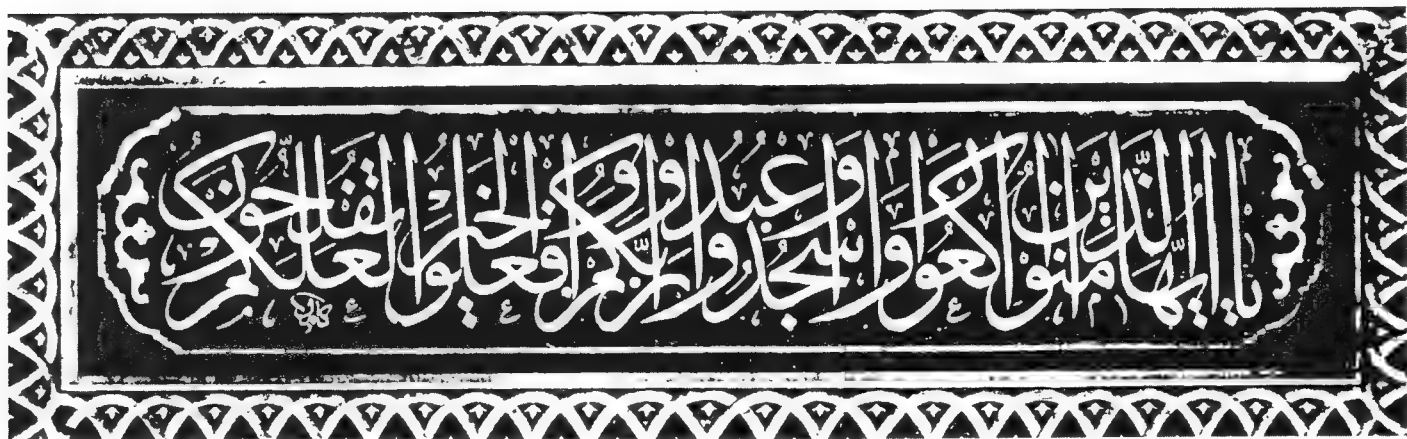 يا أيها الذين آمنوا اركعوا واسجدوا واعبدوا ربكم وافعلوا الخير لعلكم تفلحون